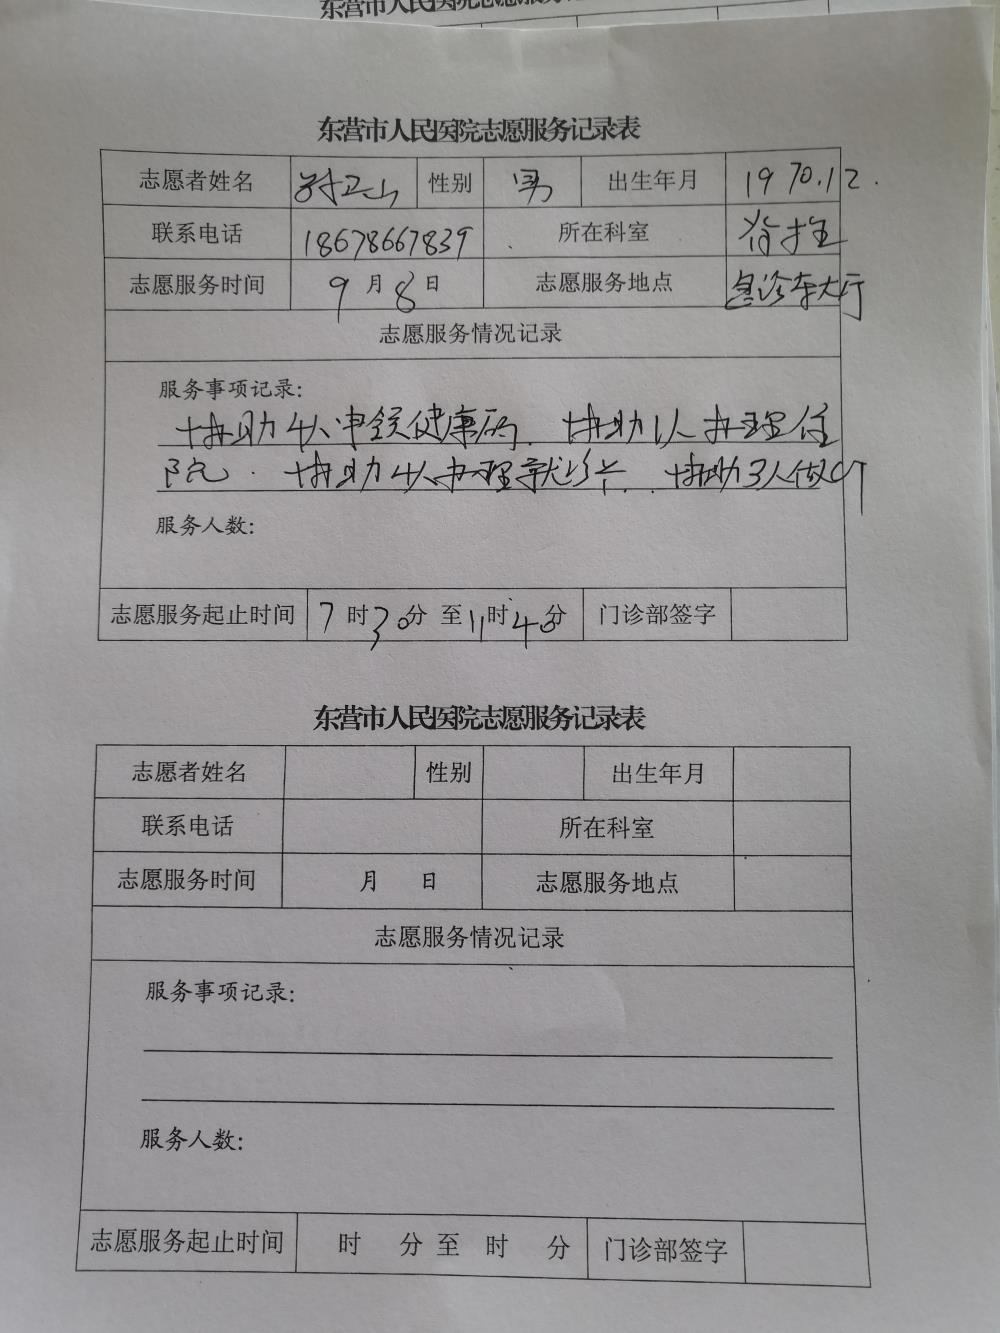 东营市人民医院志愿服务记录表
志愿者姓名 卫山 性别 男 出生年月 1970.12.
联系电话 18678667839 所在科室
志愿服务时间 9月8日 志愿服务地点 急诊车大厅
志愿服务情况记录
服务事项记录:
协助4人申领健康码. 协助1人办理住
院. 协助4人办理就诊卡. 协助3人做CT
服务人数:
志愿服务起止时间 7时30分至11时40分 门诊部签字
东营市人民医院志愿服务记录表
志愿者姓名 性别 出生年月
联系电话 所在科室
志愿服务时间 月 日 志愿服务地点
志愿服务情况记录
服务事项记录:
服务人数:
志愿服务起止时间 时 分 至 时 分 门诊部签字